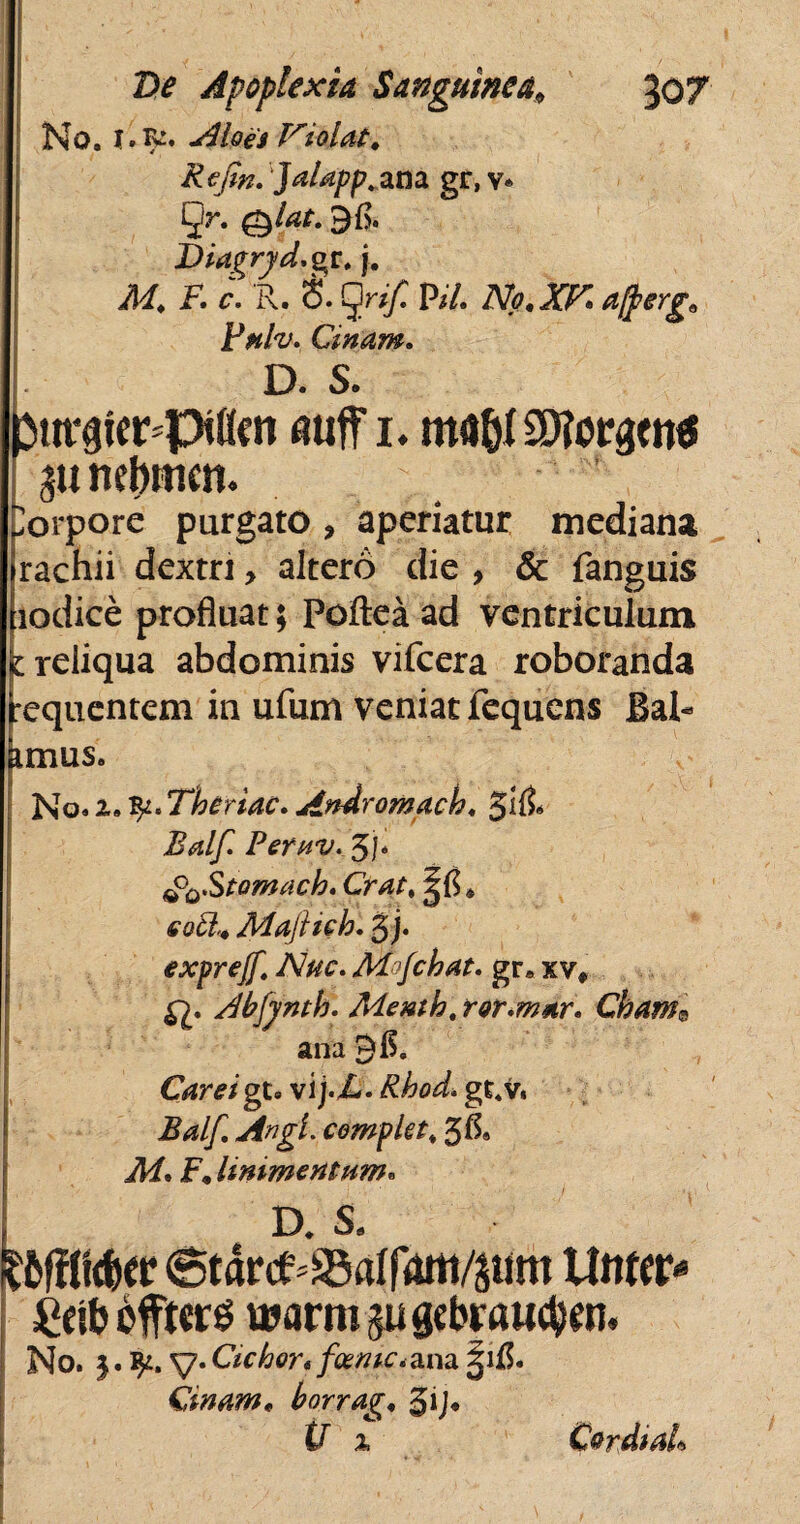 De Apoplexia Sanguinea. 307
No. 1. ℞. Aloës Violat.
Reſin. Jalapp. ana gr. v.
lat. ℈ß.
Diagryd. gr. j.
M. F. c. Pil. No. XV. aſperg.
Pulv. Cinam.
D. S.
Purgier-Pillen auff 1. mahl Morgens
zu nehmen.
orpore purgato, aperiatur mediana
rachii dextri, alterô die, & ſanguis
nodicè profluat; Poſteà ad ventriculum
t reliqua abdominis viſcera roboranda
requentem in uſum veniat ſequens Bal-
amus.
No. 2. ℞. Theriac. Andromach. ʒiß.
Balſ. Peruv. ʒj.
Stomach. Crat. ℥ß.
coct. Maſtich. ʒj.
expreſſ. Nuc. Moſchat. gr. xv.
Abſynth. Menth. ror. mar. Cham.
ana ℈ß.
Carei gt. vij. L. Rhod. gt. v.
Balſ. Angl. complet. ʒß.
M. F. linimentum.
D. S.
Köſtlicher Stärck-Balſam/zum Unter-
Leib öffters warm zu gebrauchen.
No. 3. ℞. ▽. Cichor. fœnic. ana ℥iß.
Cinam. borrag. ʒij.
U 2 Cordial.